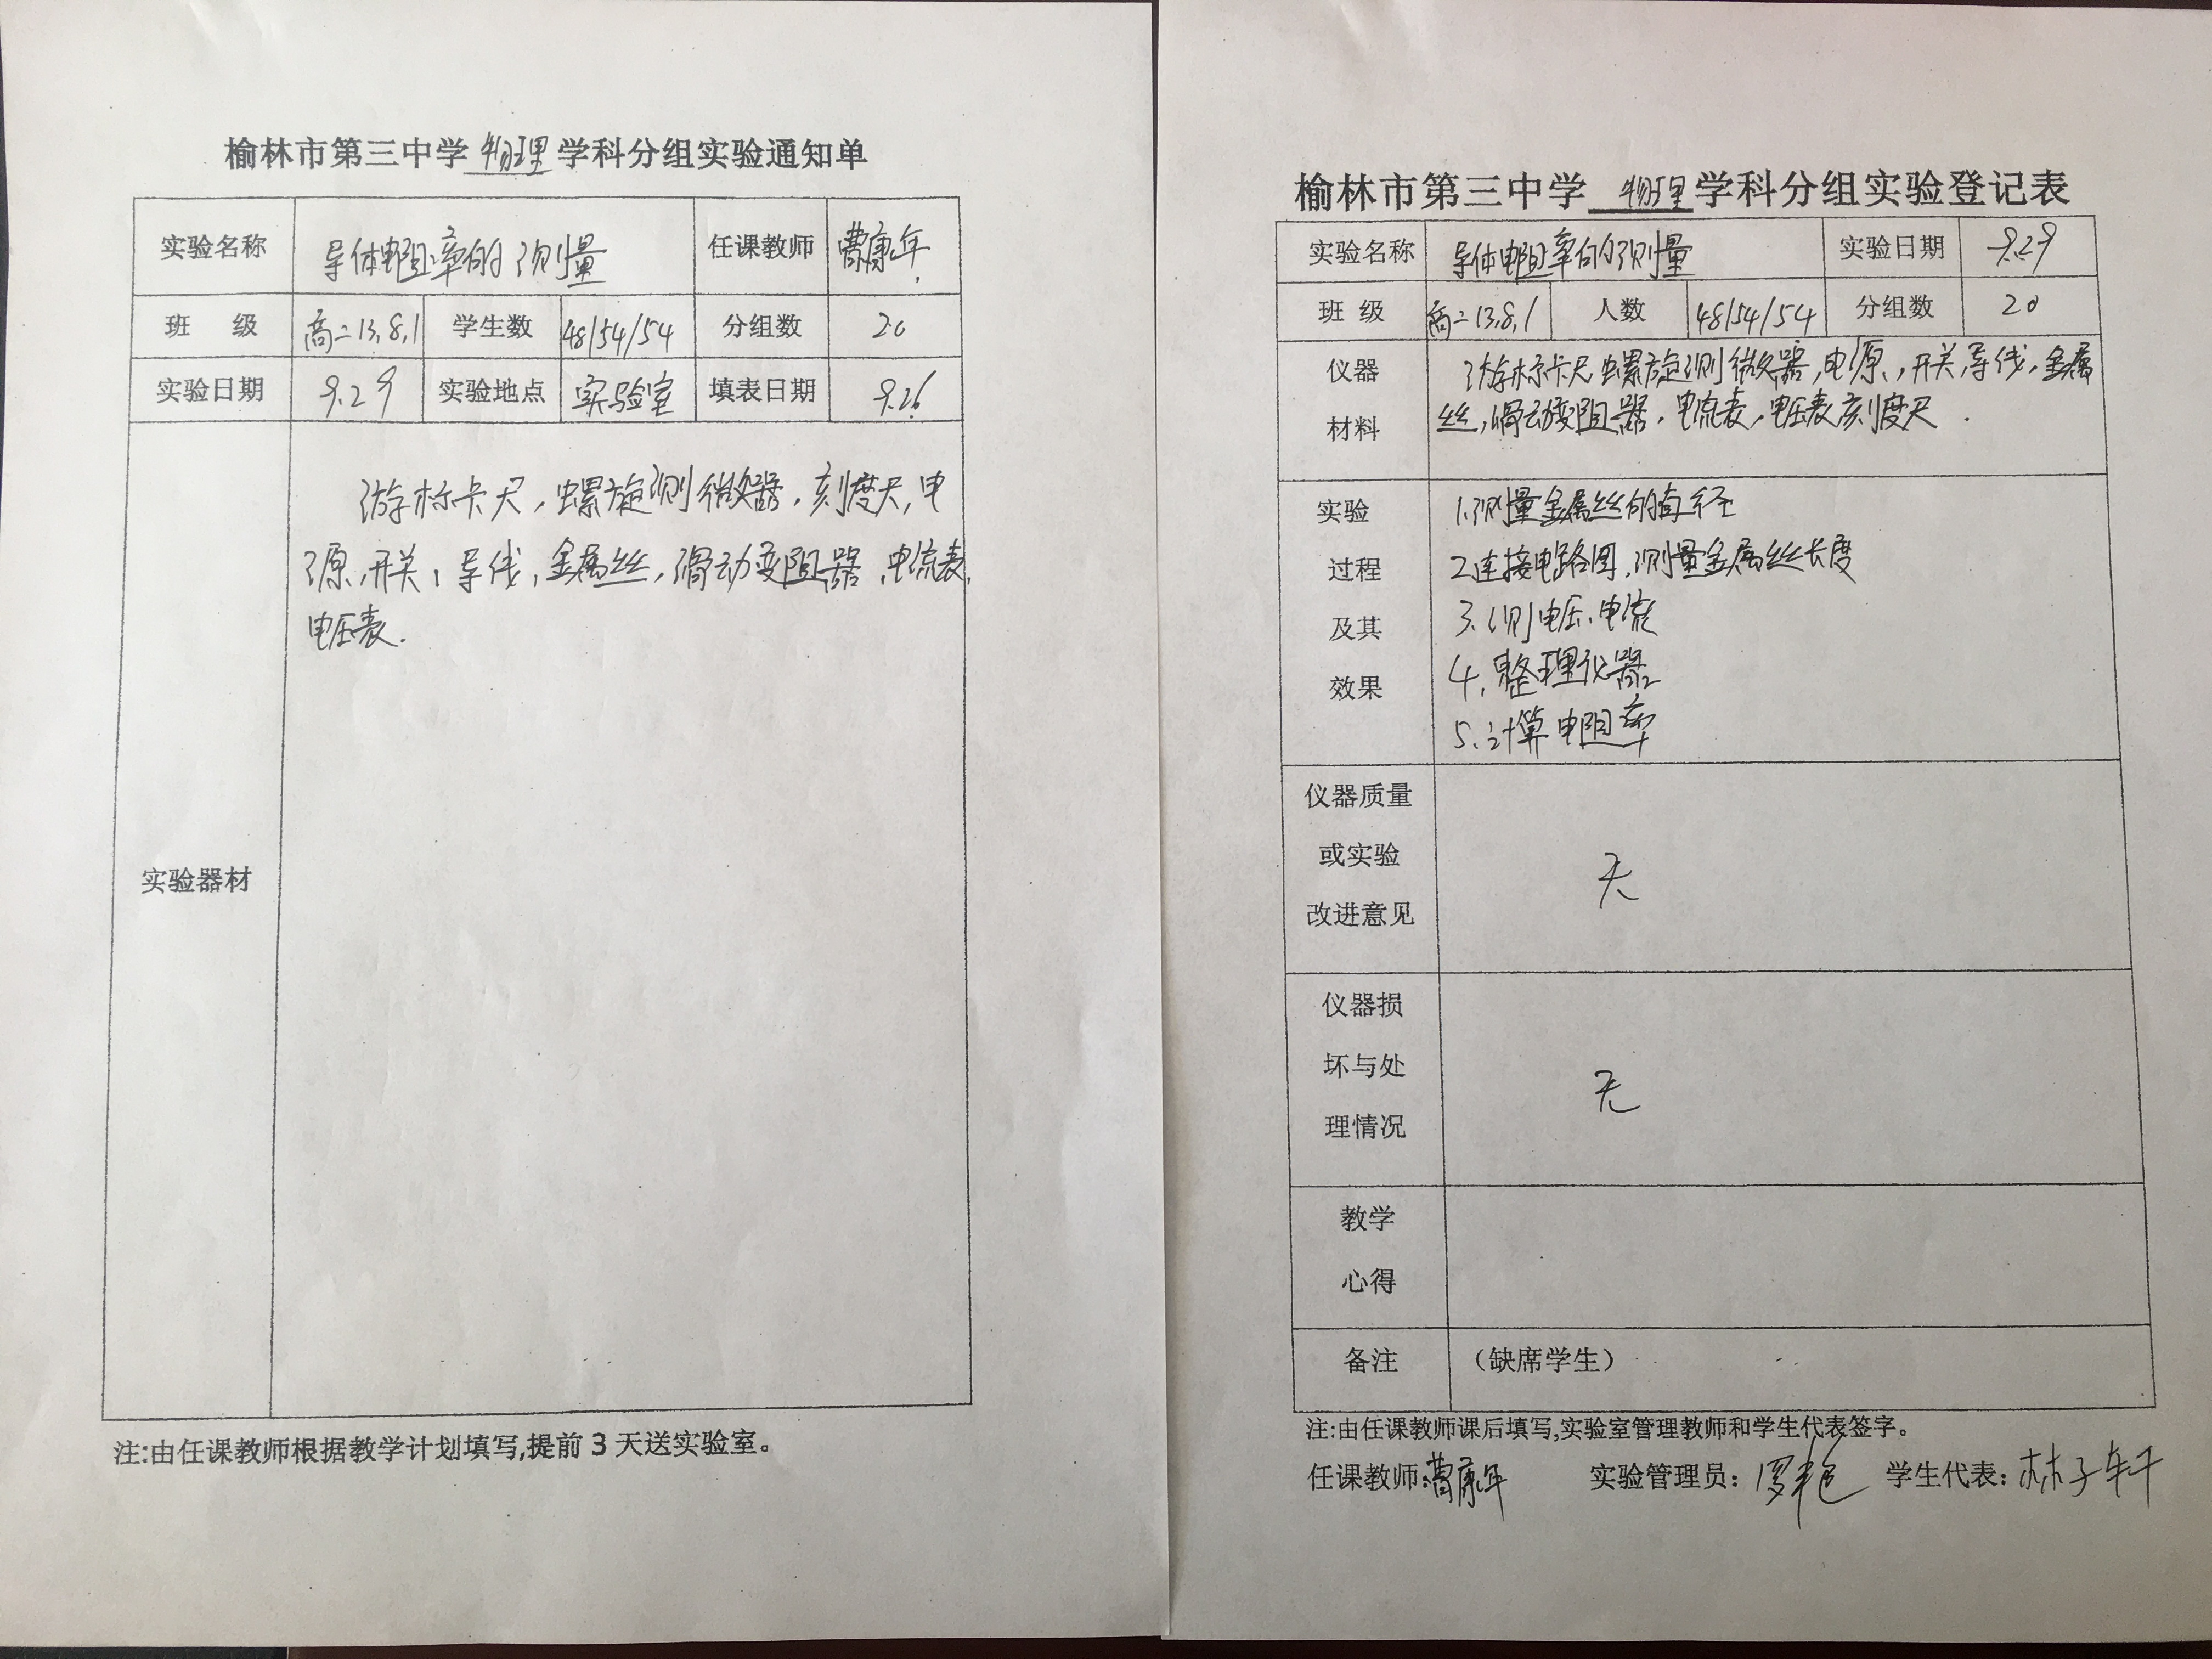 榆林市第三中学 物理 学科分组实验通知单
实验名称 导体电阻率的测量 任课教师 曹康年
班 级 高二13,8,1 学生数 48/54/54 分组数 20
实验日期 9.29 实验地点 实验室 填表日期 9.26
实验器材
游标卡尺,螺旋测微器,刻度尺,电
源,开关,导线,金属丝,滑动变阻器,电流表,
电压表.
注:由任课教师根据教学计划填写,提前 3 天送实验室。
榆林市第三中学 物理 学科分组实验登记表
实验名称 导体电阻率的测量 实验日期 9.29
班 级 高二13,8,1 人数 48/54/54 分组数 20
仪器
材料
游标卡尺,螺旋测微器,电源,开关,导线,金属
丝,滑动变阻器,电流表,电压表刻度尺.
实验
过程
及其
效果
1.测量金属丝的直径
2连接电路图,测量金属丝长度
3.测电压、电流
4.整理仪器
5.计算电阻率
仪器质量
或实验
改进意见
无
仪器损
坏与处
理情况
无
教学
心得
备注 (缺席学生)
注:由任课教师课后填写,实验室管理教师和学生代表签字。
任课教师:曹康年 实验管理员:罗艳 学生代表:林子轩